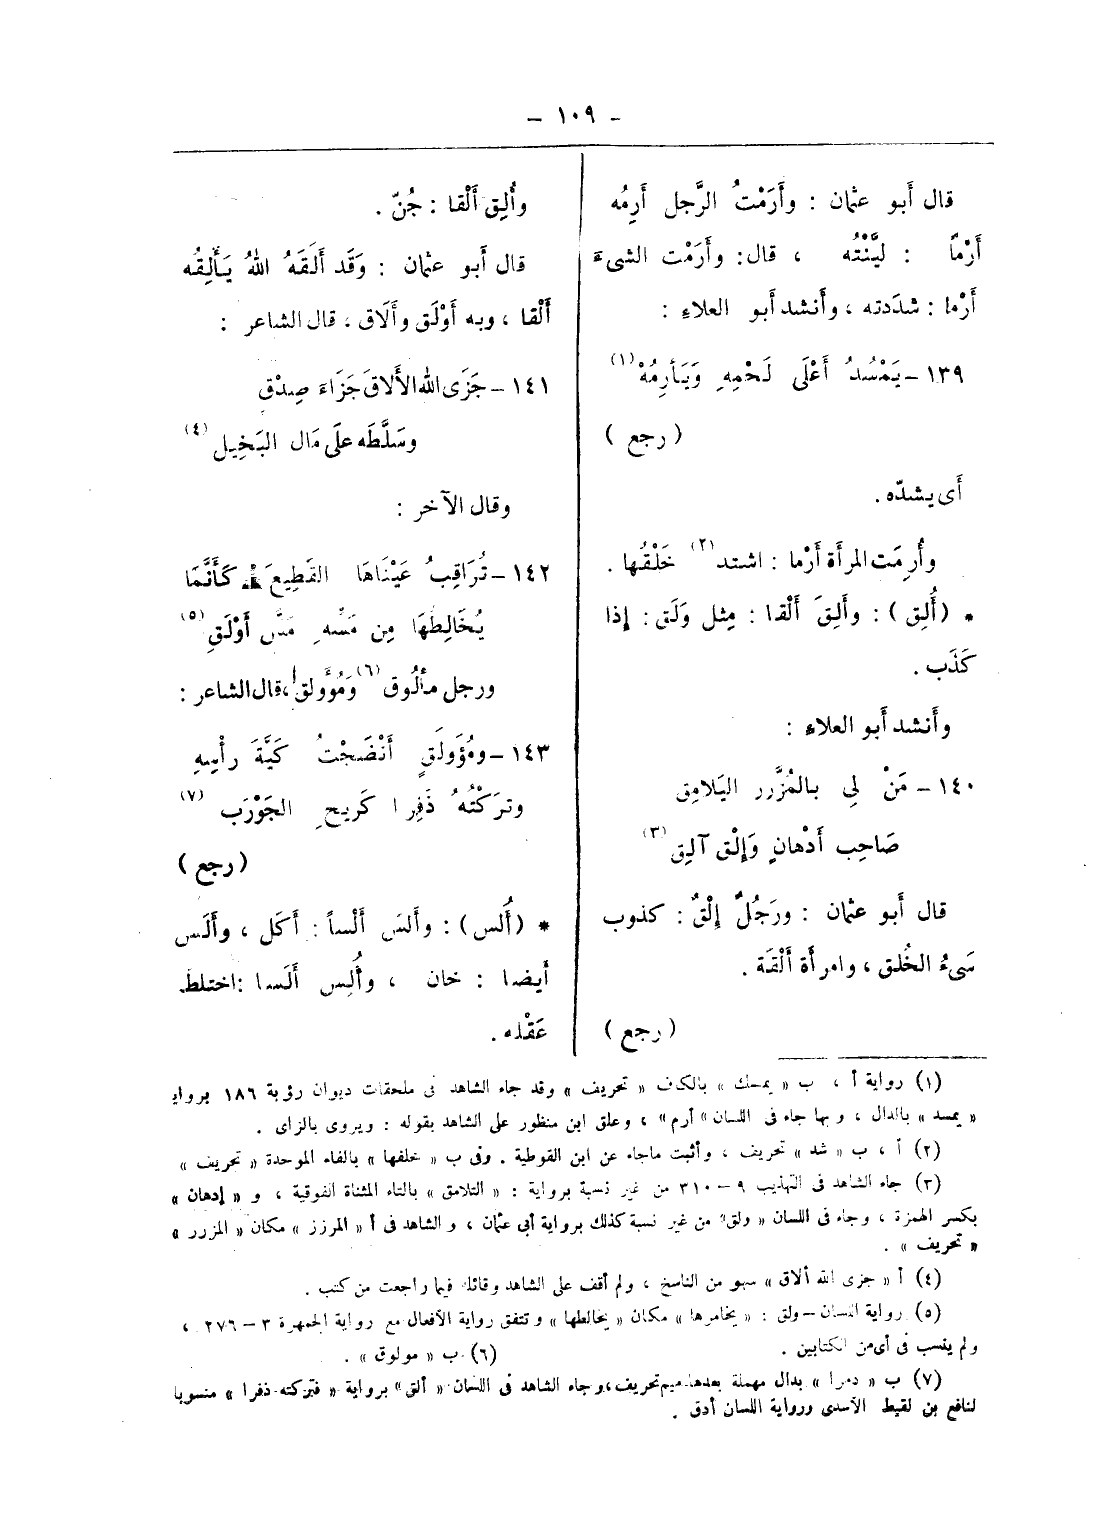 - ١٠٩ -
قال أَبو عثمان : وأَرَمْتُ الرَّجل أَرِمُه
أَرْماً : ليَّنْتُه ، قال: وأَرَمْت الشىءَ
أَرْما : شدَدته ، وأَنشد أَبو العلاءِ :
١٣٩ - يَمْسُدُ أَعْلَى لَحْمِهِ وَيَأرِمُهْ (١)
( رجع )
أَى يشدّه .
وأُرِمَت المرأَة أَرْما : اشتد (٢) خَلْقُها .
* (أُلِق) : وأَلِقَ أَلْقا : مِثل وَلَق : إذا
كَذَب .
وأَنشد أَبو العلاء :
١٤٠ - مَنْ لِى بالمُزَّرر اليَلامِق
صَاحِب أَدْهانٍ وَإِلْق آلِق (٣)
قال أَبو عثمان : ورَجُلٌ إِلْقٌ : كذوب
سَىءُ الخُلق ، وامرأَة أَلْقَة .
( رجع )
وأُلِق أَلْقا : جُنّ .
قال أَبو عثمان : وَقَد أَلَقَهُ اللهُ يَألِقُه
أَلْقا ، وبه أَوْلَق وأَلَاق ، قال الشاعر :
١٤١ - جَزَى الله الأَلاقَ جَزَاءَ صِدْق
وسَلَّطَه علَى مَال البَخِيل (٤)
وقال الآخر :
١٤٢ - تُرَاقِبُ عَيْنَاهَا القَطِيعَ كَأَنَّمَا
يُخَالِطُهَا مِن مَسِّه مَسُّ أَوْلَقِ (٥)
ورجل مألُوق (٦) وَمُؤَولق ، قال الشاعر :
١٤٣ - ومُؤَولَقٍ أَنْضَجْتُ كَيَّةَ رأْسِهِ
وترَكْتُهُ ذَفِرا كَريحِ الجَوْرَب (٧)
( رجع )
* (أُلس) : وأَلسَ أَلْساً : أَكَل ، وأَلَس
أَيضا : خان ، وأُلِس أَلَسا : اختلط
عَقْله .
(١) رواية أ ، ب « يمسك » بالكاف « تحريف » وقد جاء الشاهد فى ملحقات ديوان رؤبة ١٨٦ برواية
« يمسد » بالدال ، وبها جاء فى اللسان « أرم » ، وعلق ابن منظور على الشاهد بقوله : ويروى بالزاى .
(٢) أ ، ب « شد » تحريف ، وأثبت ماجاء عن ابن القوطية . وفى ب « خلفها » بالفاء الموحدة « تحريف »
(٣) جاء الشاهد فى التهذيب ٩ – ٣١٠ من غير نسبة برواية : « التلامق » بالتاء المثناة الفوقية ، و « إدهان »
بكسر الهمزة ، وجاء فى اللسان « ولق » من غير نسبة كذلك برواية أبى عثمان ، والشاهد فى أ « المرزز » مكان « المزرر »
« تحريف » .
(٤) أ « جزى الله ألاق » سهو من الناسخ ، ولم أقف على الشاهد وقائله فيما راجعت من كتب .
(٥) رواية اللسان – ولق : « يخامرها » مكان « يخالطها » وتتفق رواية الأفعال مع رواية الجمهرة ٣ – ٢٧٦ ،
ولم ينسب فى أى من الكتابين . (٦) ب « مولوق » .
(٧) ب « دمرا » بدال مهملة بعدها ميم تحريف ، وجاء الشاهد فى اللسان « ألق » برواية « فتركته ذفرا » منسوبا
لنافع بن لقيط الأسدى ورواية اللسان أدق .